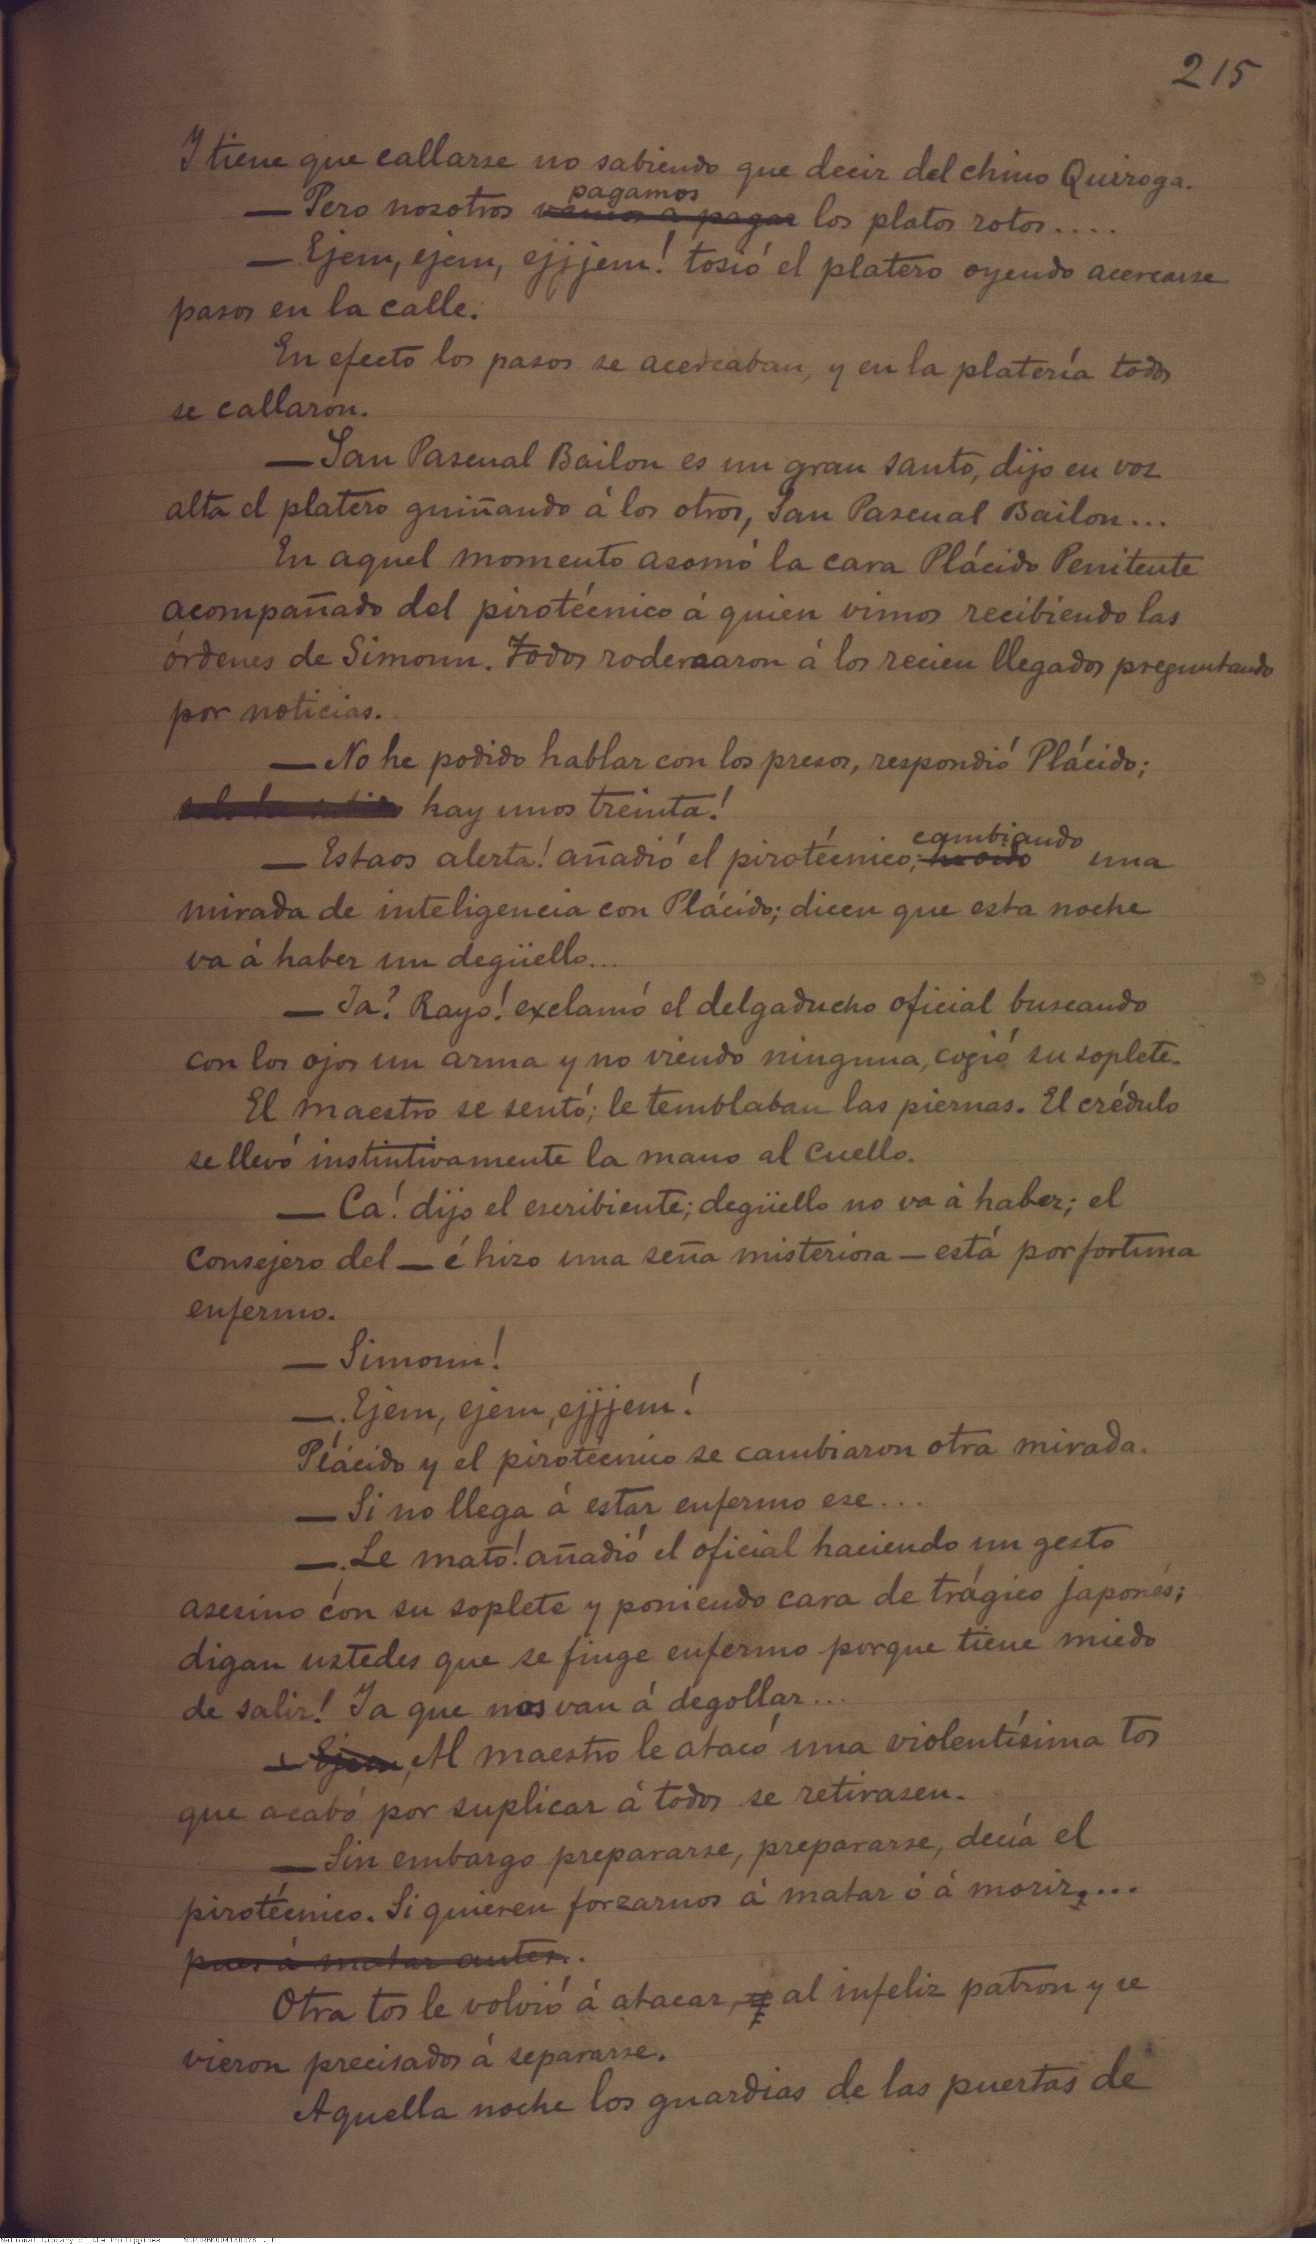 215
Y tiene que callarse no sabiendo que decir del chino Quiroga.
— Pero nosotros vamos á pagar pagamos los platos rotos....
— Ejem, ejem, ejjjem! tosió el platero oyendo acercarse
pasos en la calle.
En efecto los pasos se acercaban, y en la platería todos
se callaron.
— San Pascual Bailon es un gran santo, dijo en voz
alta el platero guiñando á los otros, San Pascual Bailon...
En aquel momento asomó la cara Plácido Penitente
acompañado del pirotécnico á quien vimos recibiendo las
órdenes de Simoun. Todos rodearon á los recien llegados preguntando
por noticias.
— No he podido hablar con los presos, respondió Plácido;
hay unos treinta!
— Estaos alerta! añadió el pirotécnico, cambiando una
mirada de inteligencia con Plácido; dicen que esta noche
va á haber un degüello...
— Ja? Rayo! exclamó el delgaducho oficial buscando
con los ojos un arma y no viendo ninguna, cogió su soplete.
El maestro se sentó; le temblaban las piernas. El crédulo
se llevó instintivamente la mano al cuello.
— Ca! dijo el escribiente; degüello no va á haber; el
consejero del — é hizo una seña misteriosa — está por fortuna
enfermo.
— Simoun!
— Ejem, ejem, ejjjem!
Plácido y el pirotécnico se cambiaron otra mirada.
— Si no llega á estar enfermo ese...
— Le mato! añadió el oficial haciendo un gesto
asesino con su soplete y poniendo cara de trágico japonés;
digan ustedes que se finge enfermo porque tiene miedo
de salir! Ya que nos van á degollar...
— Ejem, Al maestro le atacó una violentísima tos
que acabó por suplicar á todos se retirasen.
— Sin embargo prepararse, prepararse, decía el
pirotécnico. Si quieren forzarnos á matar ó á morir....
pues á matar antes.
Otra tos le volvió á atacar, al infeliz patron y se
vieron precisados á separarse.
Aquella noche los guardias de las puertas de
National Library of the Philippines